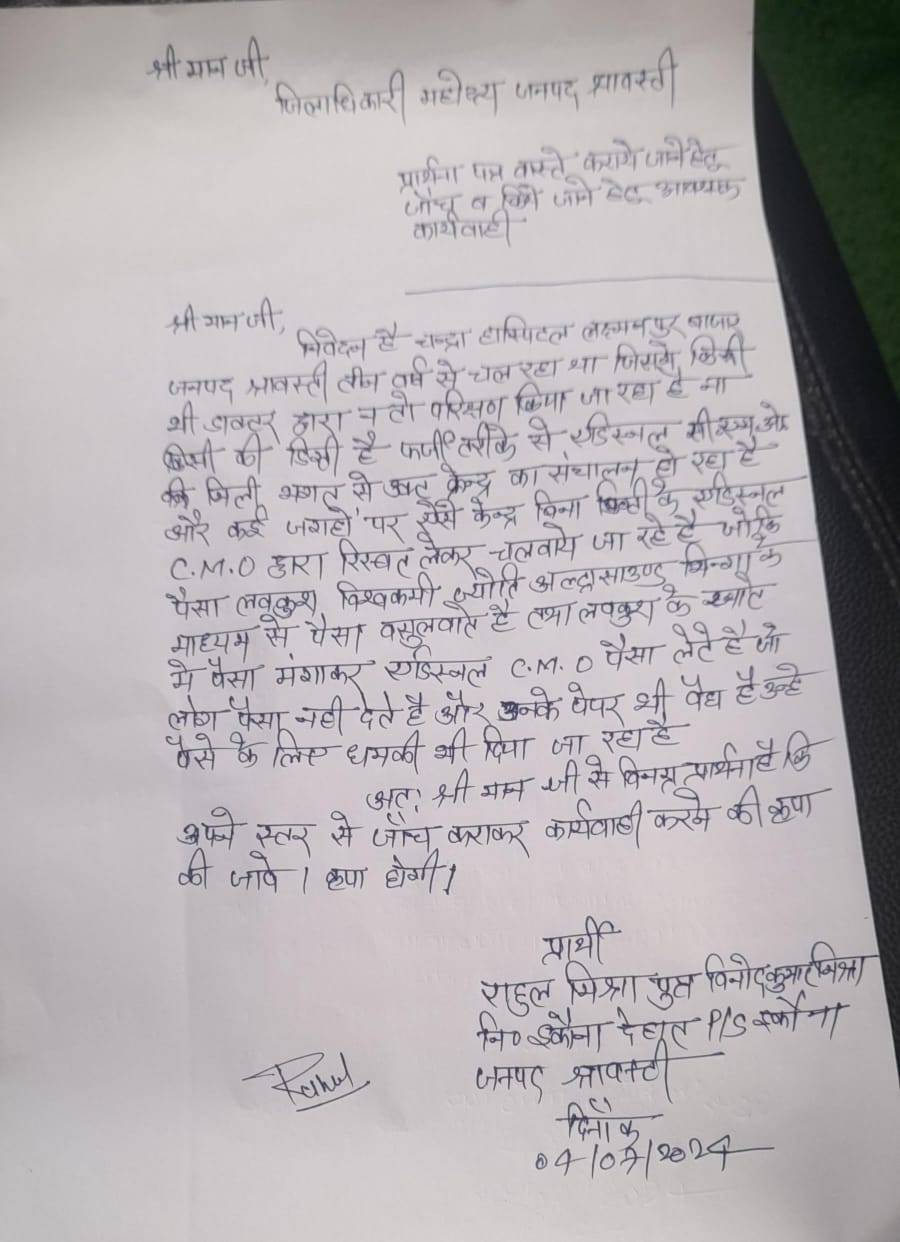 श्री मान जी,
जिलाधिकारी महोदय जनपद श्रावस्ती
प्रार्थना पत्र वास्ते कराये जाने हेतु
जाँच व किये जाने हेतु आवश्यक
कार्यवाही
श्री मान जी,
निवेदन है चन्द्रा हास्पिटल लक्ष्मनपुर बाजार
जनपद श्रावस्ती तीन वर्ष से चल रहा था जिसमे किसी
भी डाक्टर द्वारा न तो परिक्षण किया जा रहा है ना
किसी की डिग्री है फर्जी तरीके से एडिस्नल सी०एम०ओ
की मिली भगत से उक्त केन्द्र का संचालन हो रहा है
और कई जगहो पर ऐसे केन्द्र बिना डिग्री के एडिस्नल
C.M.O द्वारा रिस्वत लेकर चलवाये जा रहे है जोकि
पैसा लवकुश विश्वकर्मा ज्योति अल्ट्रासाउण्ड भिन्गा के
माध्यम से पैसा वसुलवाते है तथा लवकुश के खाते
मे पैसा मंगाकर एडिस्नल C.M.O पैसा लेते है जो
लोग पैसा नही देते है और उनके पेपर भी वैध है उन्हे
पैसे के लिए धमकी भी दिया जा रहा है
अतः श्री मान जी से विनम्र प्रार्थना है कि
अपने स्तर से जाँच कराकर कार्यवाही करने की कृपा
की जावे । कृपा होगी।
प्रार्थी
राहुल मिश्रा पुत्र विनोद कुमार मिश्रा
नि० इकौना देहात P/S इकौना
जनपद श्रावस्ती
Rahul
दिनाँक
04/07/2024